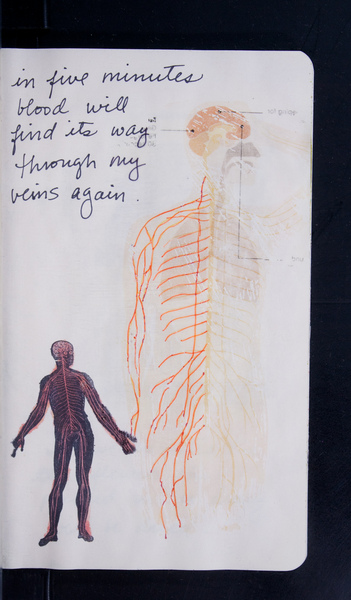 in five minutes
blood will
find its way
through my
veins again.